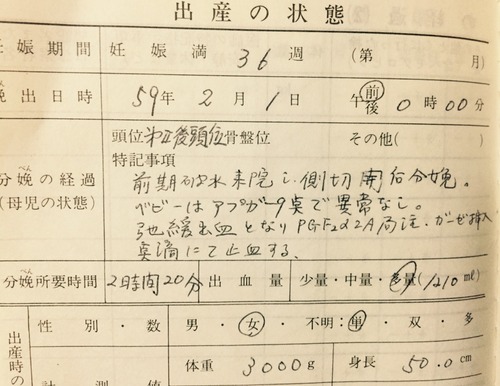 出産の状態
妊娠期間 妊娠満 36 週 (第 月)
娩出日時 59年 2月 1日 午前後 0時00分
頭位 第II後頭位 骨盤位 その他(
特記事項
前期破水来院し、側切開后分娩。
ベビーはアプガー9点で異常なし。
弛緩出血となりPGF2α2A局注、ガーゼ挿入
点滴にて止血する。
分娩の経過
(母児の状態)
分娩所要時間 2時間20分 出血量 少量・中量・多量(1210ml)
出産時の 性別・数 男・女・不明:単・双・多
体重 3000g 身長 50.0cm
計測値